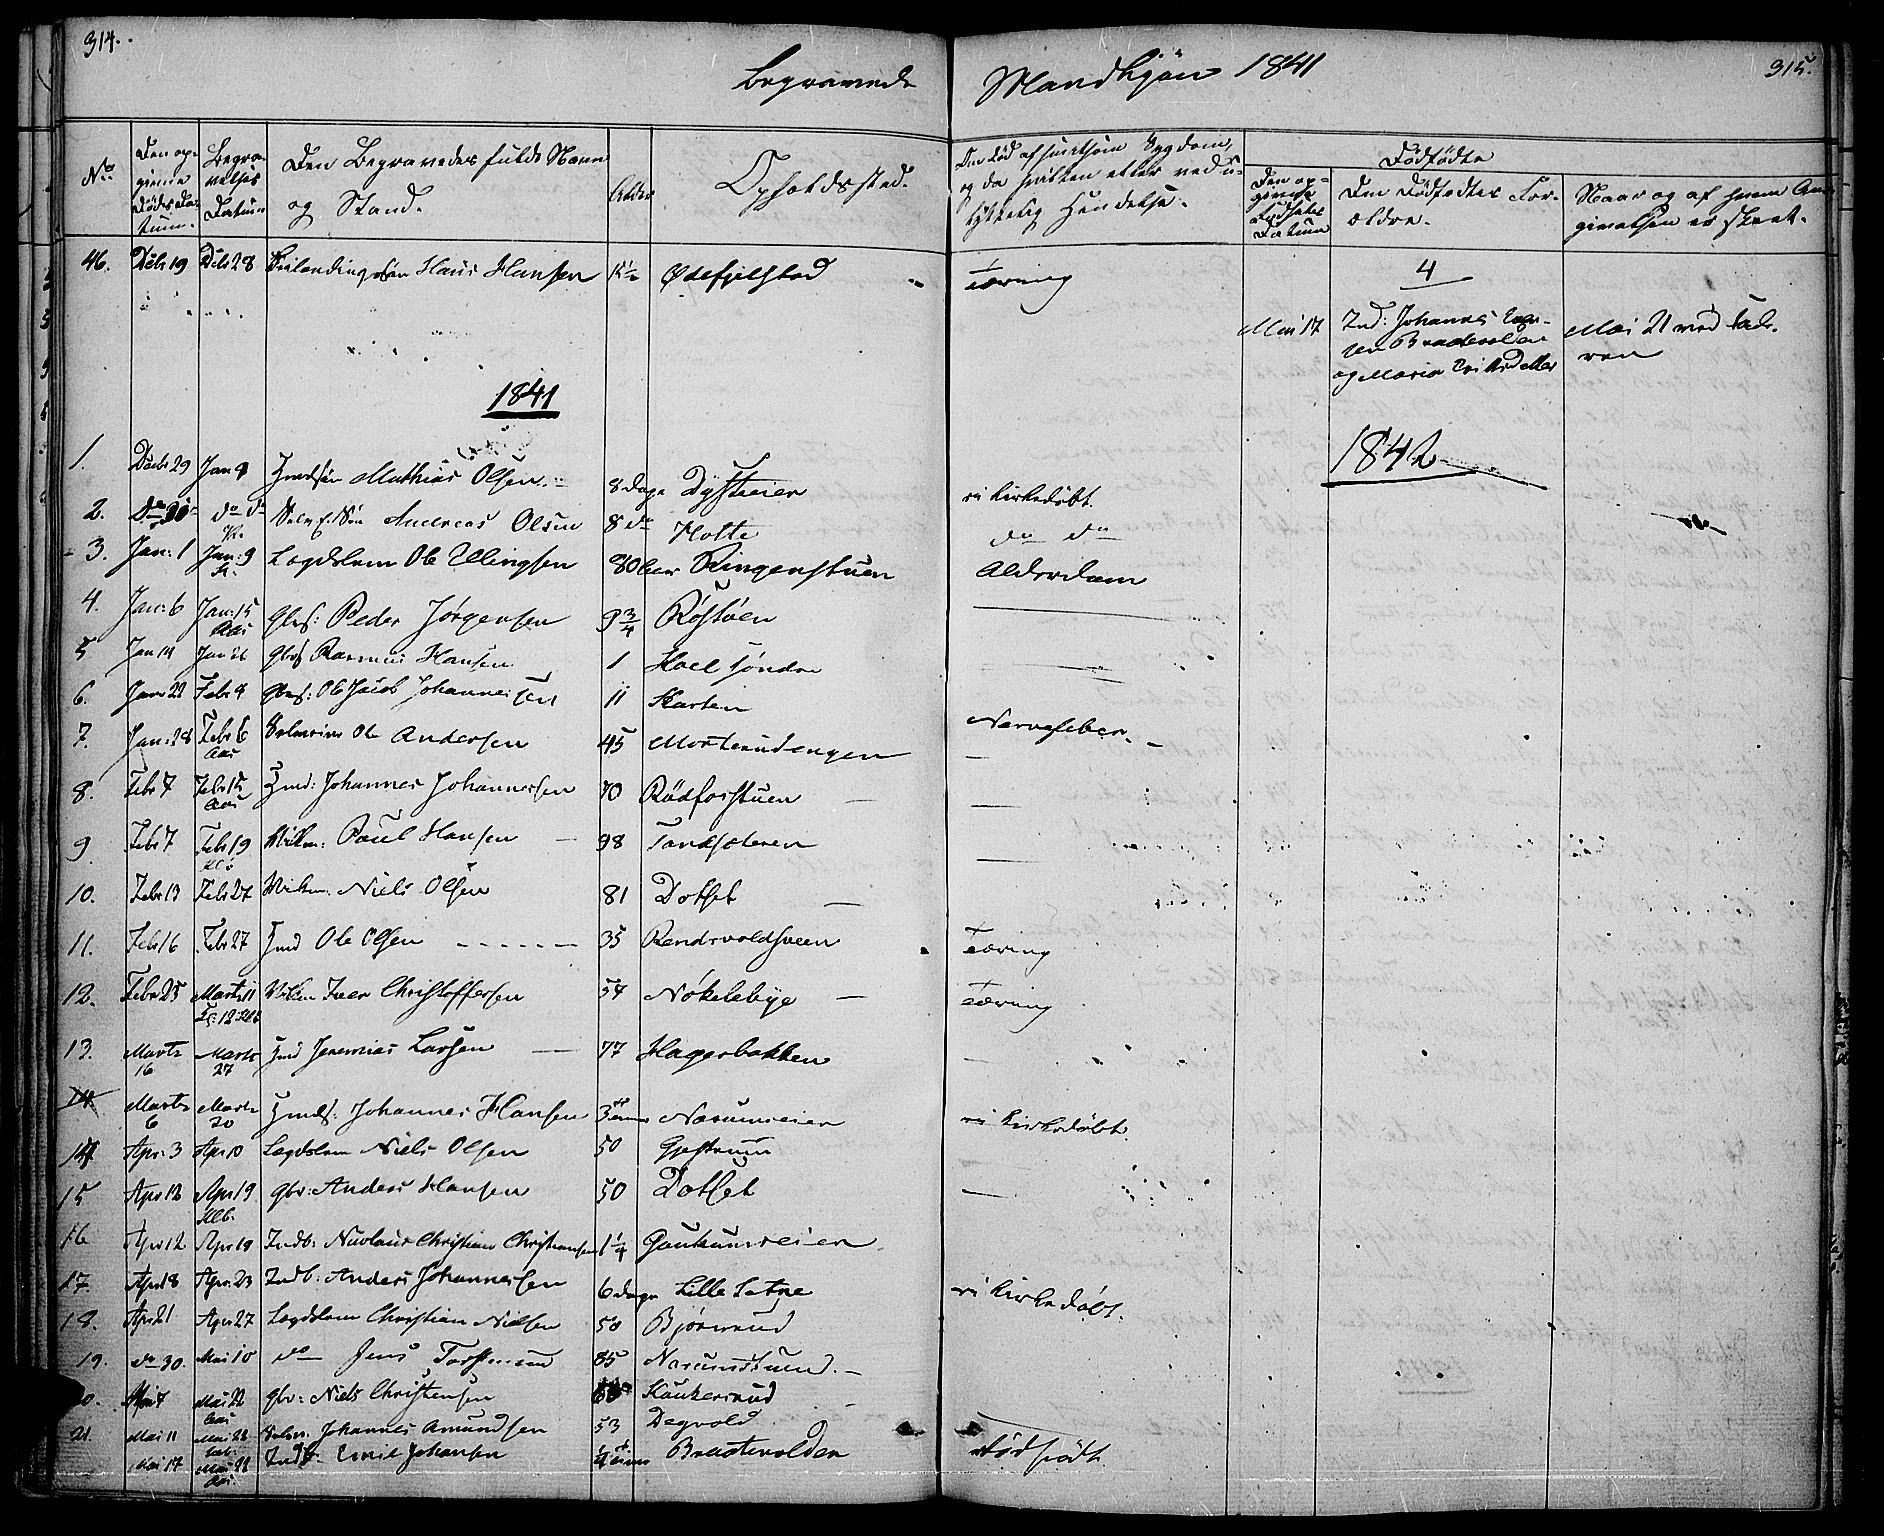 314.
315.
Begravede Mandkjön 1841
No
Den op-
givne
Døds Da-
tum.
Begra-
velses
Datum
Den Begravedes fulde Navn
og Stand.
Alder
Opholdssted.
Den død af smitsom Sygdom,
og da hvilken eller ved u-
lykkelig Hendelse.
Dödfödte
Den op-
givne
Födsels
Datum
Den Dödfødtes For-
ældre.
Naar og af hvem An-
givelsen er skeet.
46. Dcbr 19 Dcbr 28 Hans Hansen Ødefjelstad Tæring
4
Mai 17 Ind: Johannes
Braatevolden
og Maria Eriksdatter
Mai 21 ved Fade-
ren
1841
1842
1. Dcbr 29 Jan 8 Hmdsön Mathias Olsen 8 Dage Dysteeier ei kirkedöbt.
2. Do 30 do do Andreas Olsen 8 do Holte do do
3. Jan: 1 Jan: 9 Lægdslem Ole Ellingsen 80 Aar Ringenstuen Alderdom
4. Jan: 6 Jan: 15 Gbrs: Peder Jörgensen 9 3/4 Röstöen
Aas
5 Jan 14 Jan 26 Gbrs Rasmus Hansen 1 Hoel söndre
6. Jan 22 Febr 4 Gbrs: Ole Jacob Johannessen 11 Karten
7. Jan: 28 Febr 6 Selveier Ole Andersen 45 Morterudengen Nervefeber.
Aas
8. Febr 7 Febr 15 Hmd: Johannes Johannessen 70 Rödfosstuen
Aas
9 Febr 7 Febr 19 Paul Hansen 98 Tandsæteren
Klb
10. Febr 13 Febr 27 Niels Olsen 81 Dotset
11. Febr 16 Febr 27 Hmd Ole Olsen 35 Rendsvoldsveen Tæring
12. Febr 25 Marts 11 Iver Christoffersen 54 Nökelebye Tæring
13. Marts 16 Marts 27 Hmd Jeremias Larsen 77 Hagerbakken
14. Marts 6 Marts 20 Hmds: Johannes Hansen Næsumseier ei kirkedöbt.
14 Apr: 3 Apr 10 Lægdslem Niels Olsen 50 Gjestrum
15 Apr 12 Apr 19 Gbr: Anders Hansen 50 Dotset
Klb.
16 Apr 12 Apr 19 Indb: Nicolaus Christian Christiansen 1 1/4 Gaukumseier
17. Apr 18 Apr: 23 Indb: Anders Johannessen 6 Dage Lille Sætre ei kirkedöbt.
18. Apr 21 Apr 27 Lægdslem Christian Nielsen 50 Bjørnerud
19. do 30. Mai 10 do Jens 85 Næsumstuen
20. Mai 7 Mai 22 Gbr: Niels Christensen Haukerud
Aas
21. Mai 11 Mai 22 Johannes Amundsen 53 Degvold
Mai 17 Mai 22 Indb: Emil Johansen Braatevolden Dødfödt
Aas